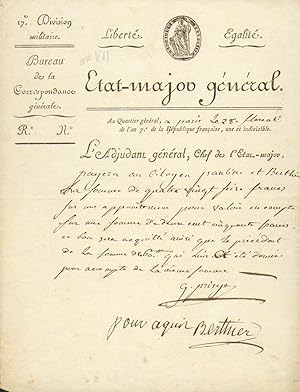 17.e Division
militaire.
Bureau
de la
Correspondance
générale.
R.o N.o
an VII
Liberté. Egalité.
Etat-major général.
Au Quartier général, a paris le 28 floreal
de l'an 7.e de la République française, une et indivisible.
L'Adjudant général, Chef de l'Etat-major,
payera au Citoyen Berthier
La somme de quatre vingt francs
sur mes appointemens pour valoir en compte
sur une somme de cent cinquante francs
ce bon sera acquitté ainsi que le précédent
de la somme de qui lui été donné
pour accompte de la même somme
pour aquit Berthier